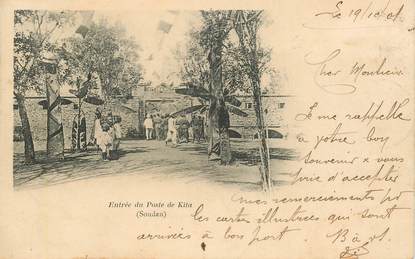 Le 19/10/01
Cher Monsieur
Je me rappelle
à votre bon
souvenir & vous
prie d'accepter
mes remerciements pr
les cartes illustrées qui sont
arrivées à bon port.
Entrée du Poste de Kita
(Soudan)